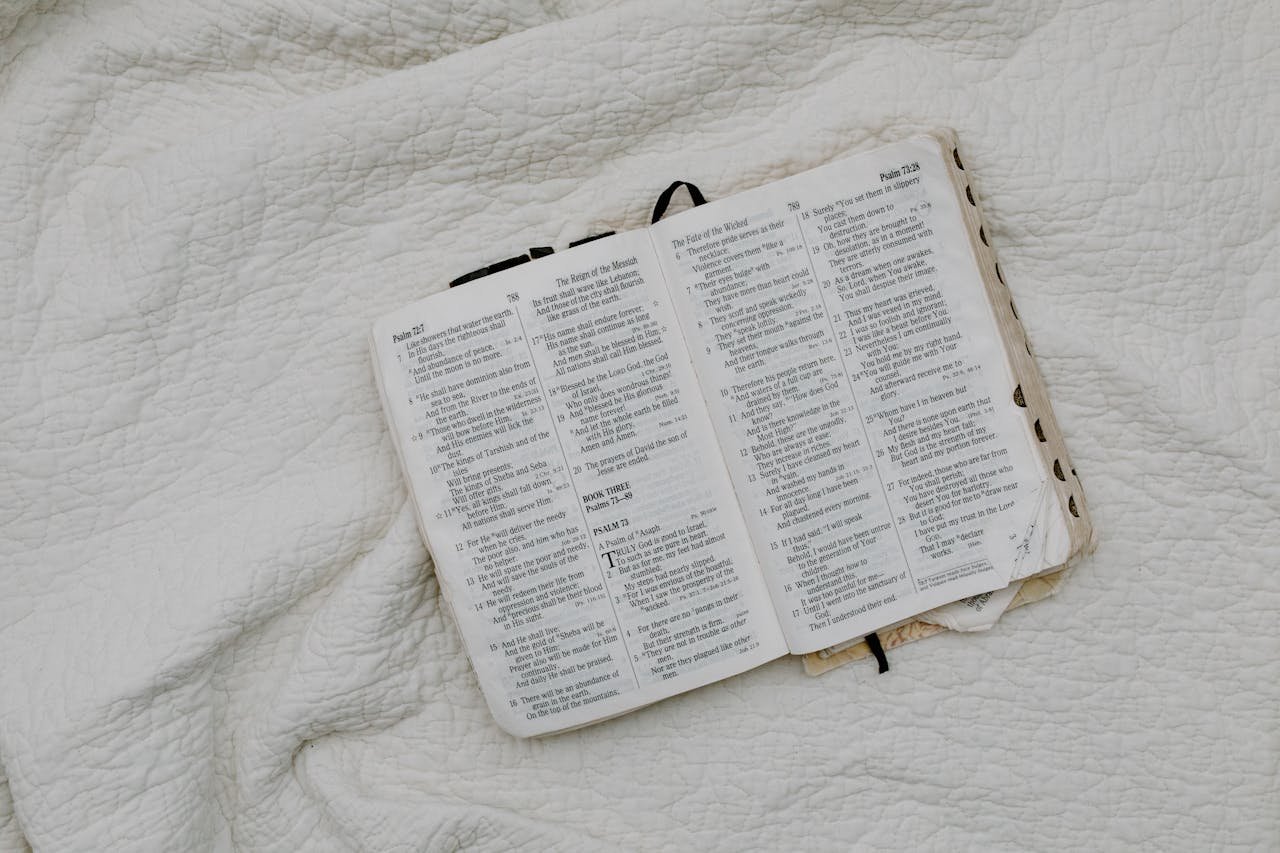 Psalm 72:7
788
The Reign of the Messiah
Like showers that water the earth.
7 In His days the righteous shall
flourish,
And abundance of peace,
Until the moon is no more.
8 He shall have dominion also from
sea to sea,
And from the River to the ends of
the earth.
☆ 9 Those who dwell in the wilderness
will bow before Him,
And His enemies will lick the
dust.
10 The kings of Tarshish and of the
isles
Will bring presents;
The kings of Sheba and Seba
Will offer gifts.
☆ 11 Yes, all kings shall fall down
before Him;
All nations shall serve Him.
12 For He will deliver the needy
when he cries,
The poor also, and him who has
no helper.
13 He will spare the poor and needy,
And will save the souls of the
needy.
14 He will redeem their life from
oppression and violence;
And precious shall be their blood
in His sight.
15 And He shall live;
And the gold of Sheba will be
given to Him;
Prayer also will be made for Him
continually,
And daily He shall be praised.
16 There will be an abundance of
grain in the earth,
On the top of the mountains;
Its fruit shall wave like Lebanon;
And those of the city shall flourish
like grass of the earth.
17 His name shall endure forever;
His name shall continue as long
as the sun.
And men shall be blessed in Him;
All nations shall call Him blessed.
18 Blessed be the LORD God, the God
of Israel,
Who only does wondrous things!
19 And blessed be His glorious
name forever!
And let the whole earth be filled
with His glory.
Amen and Amen.
20 The prayers of David the son of
Jesse are ended.
BOOK THREE
Psalms 73—89
PSALM 73
A Psalm of Asaph.
TRULY God is good to Israel,
To such as are pure in heart.
2 But as for me, my feet had almost
stumbled;
My steps had nearly slipped.
3 For I was envious of the boastful,
When I saw the prosperity of the
wicked.
4 For there are no pangs in their
death,
But their strength is firm.
5 They are not in trouble as other
men,
Nor are they plagued like other
men.
The Fate of the Wicked
789
Psalm 73:28
6 Therefore pride serves as their
necklace;
Violence covers them like a
garment.
7 Their eyes bulge with
abundance;
They have more than heart could
wish.
8 They scoff and speak wickedly
concerning oppression;
They speak loftily.
9 They set their mouth against the
heavens,
And their tongue walks through
the earth.
10 Therefore his people return here,
And waters of a full cup are
drained by them.
11 And they say, "How does God
know?
And is there knowledge in the
Most High?"
12 Behold, these are the ungodly,
Who are always at ease;
They increase in riches.
13 Surely I have cleansed my heart
in vain,
And washed my hands in
innocence.
14 For all day long I have been
plagued,
And chastened every morning.
15 If I had said, "I will speak
thus,"
Behold, I would have been untrue
to the generation of Your
children.
16 When I thought how to
understand this,
It was too painful for me—
17 Until I went into the sanctuary of
God;
Then I understood their end.
18 Surely You set them in slippery
places;
You cast them down to
destruction.
19 Oh, how they are brought to
desolation, as in a moment!
They are utterly consumed with
terrors.
20 As a dream when one awakes,
So, Lord, when You awake,
You shall despise their image.
21 Thus my heart was grieved,
And I was vexed in my mind.
22 I was so foolish and ignorant;
I was like a beast before You.
23 Nevertheless I am continually
with You;
You hold me by my right hand.
24 You will guide me with Your
counsel,
And afterward receive me to
glory.
25 Whom have I in heaven but
You?
And there is none upon earth that
I desire besides You.
26 My flesh and my heart fail;
But God is the strength of my
heart and my portion forever.
27 For indeed, those who are far from
You shall perish;
You have destroyed all those who
desert You for harlotry.
28 But it is good for me to draw near
to God;
I have put my trust in the Lord
GOD,
That I may declare
works.